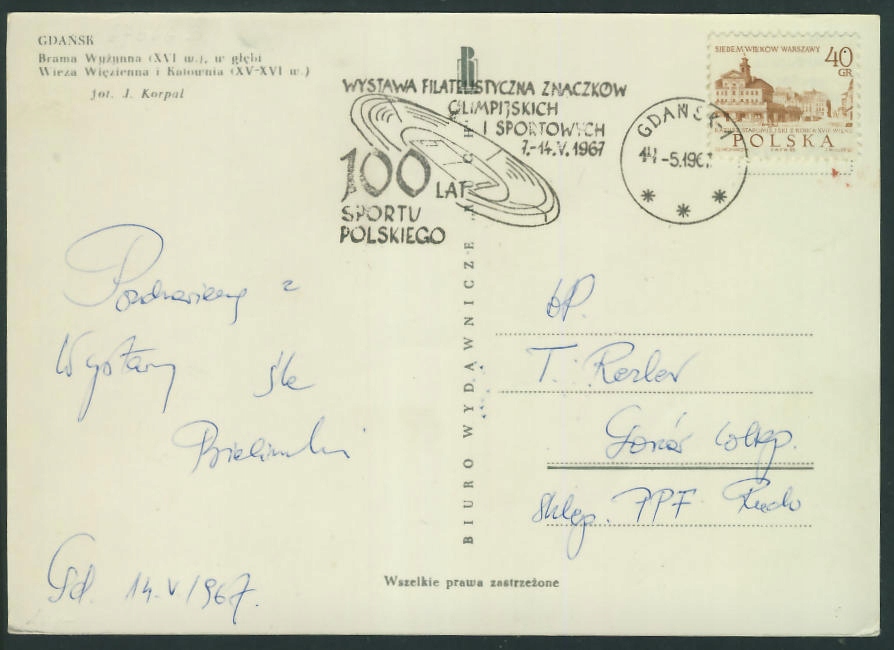 GDAŃSK
Brama Wyżynna (XVI w.), w głębi
Wieża Więzienna i Katownia (XV-XVI w.)
fot. J. Korpal
WYSTAWA FILATELISTYCZNA ZNACZKÓW
OLIMPIJSKICH
I SPORTOWYCH
7.-14.V.1967
100 LAT
SPORTU
POLSKIEGO
GDAŃSK 1
14-5.196
SIEDEM WIEKÓW WARSZAWY
40
GR
POLSKA
BIURO WYDAWNICZE "RUCH"
Pozdrowienia z
Wystawy śle
Bieliński
Gd. 14.V 1967.
WP.
T. Rezler
Gorzów Wlkp.
Sklep. PPF Ruch
Wszelkie prawa zastrzeżone